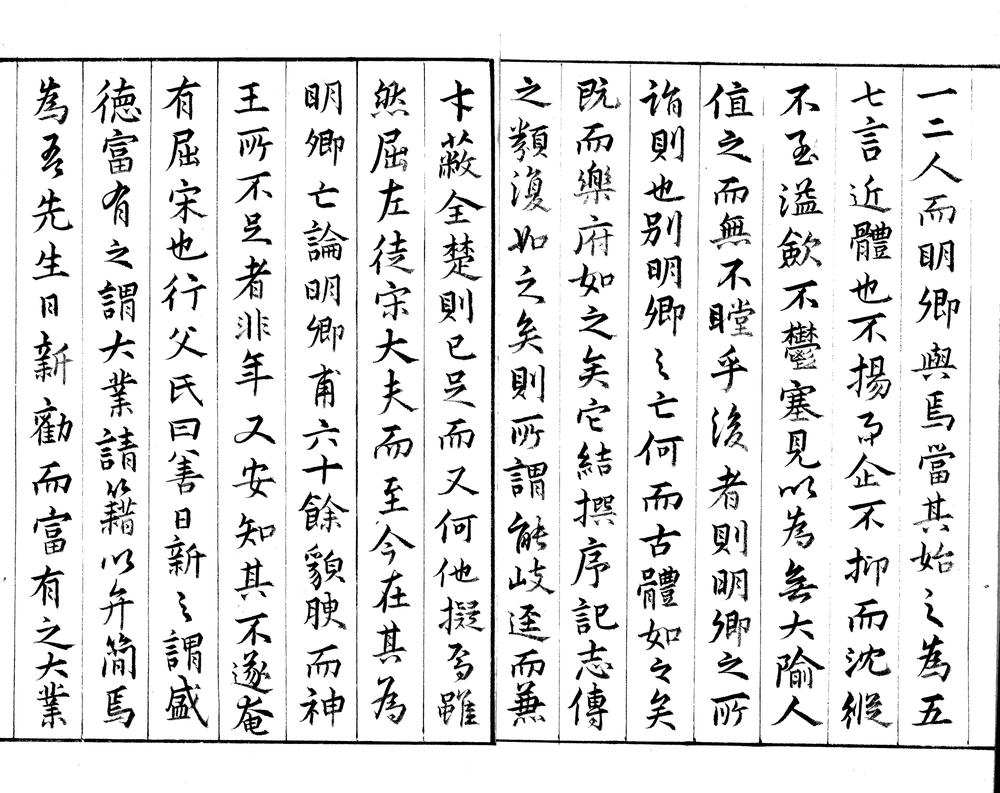 一二人而明卿與焉當其始之為五
七言近體也不揚而企不抑而沈縱
不至溢歛不鬱塞見以為無大隃人
值之而無不瞠乎後者則明卿之所
詣則也别明卿之亡何而古體如之矣
既而樂府如之矣它結撰序記志傳
之類復如之矣則所謂能岐逕而兼
卞蔽全楚則已足而又何他擬焉雖
然屈左徒宋大夫而至今在其為
明卿亡論明卿甫六十餘貌腴而神
王所不足者非年又安知其不遂奄
有屈宋也行父氏曰善日新之謂盛
徳富有之謂大業請籍以弁簡焉
為吾先生日新勸而富有之大業